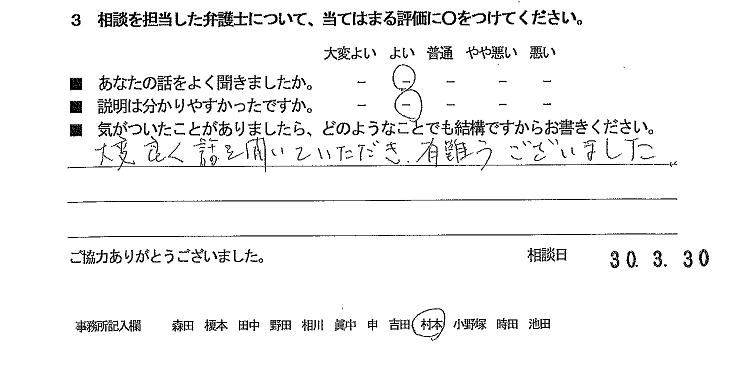 3 相談を担当した弁護士について、当てはまる評価に〇をつけてください。
大変よい よい 普通 やや悪い 悪い
■ あなたの話をよく聞きましたか。 － － － － －
■ 説明は分かりやすかったですか。 － － － － －
■ 気がついたことがありましたら、どのようなことでも結構ですからお書きください。
大変良く話を聞いていただき、有難うございました。
ご協力ありがとうございました。 相談日 30. 3. 30
事務所記入欄 森田 榎本 田中 野田 相川 眞中 申 吉田 村本 小野塚 時田 池田